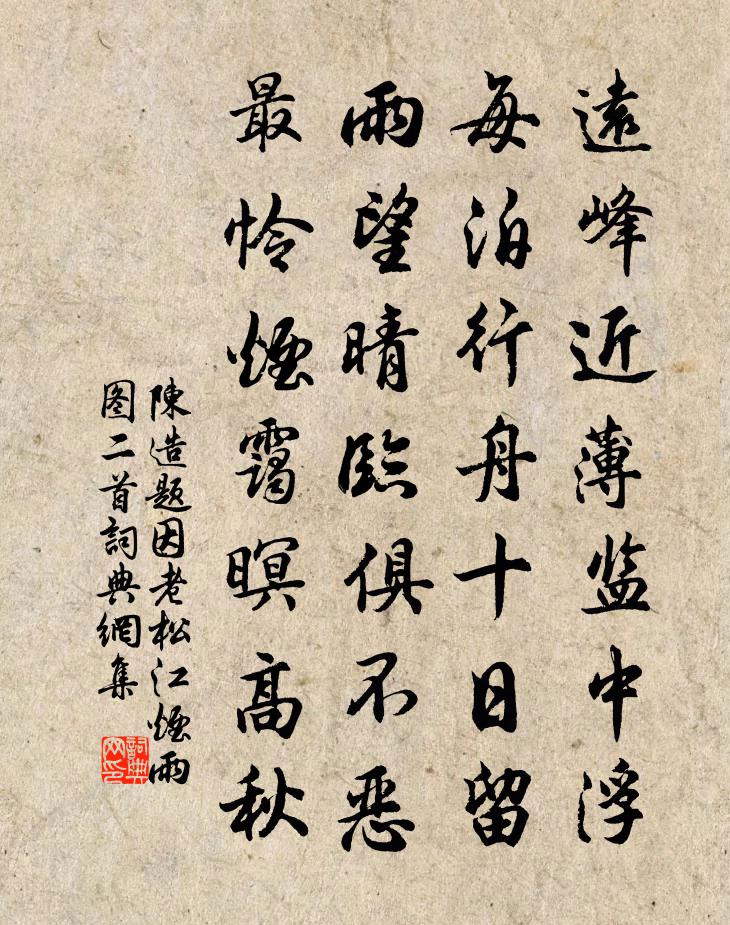 遠峰近薄監中浮
每泊行舟十日留
雨望晴臨俱不惡
最憐煙靄暝高秋
陳造題因老松江煙雨
图二首詞典網集
詞典
网印